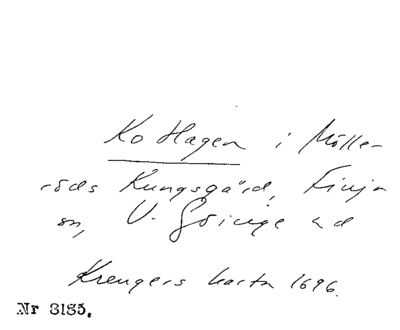 Ko Hagen i Mölle-
röds Kungsgård, Finja
sn, V. Göinge hd
Krengers karta 1696.
Nr 3135.